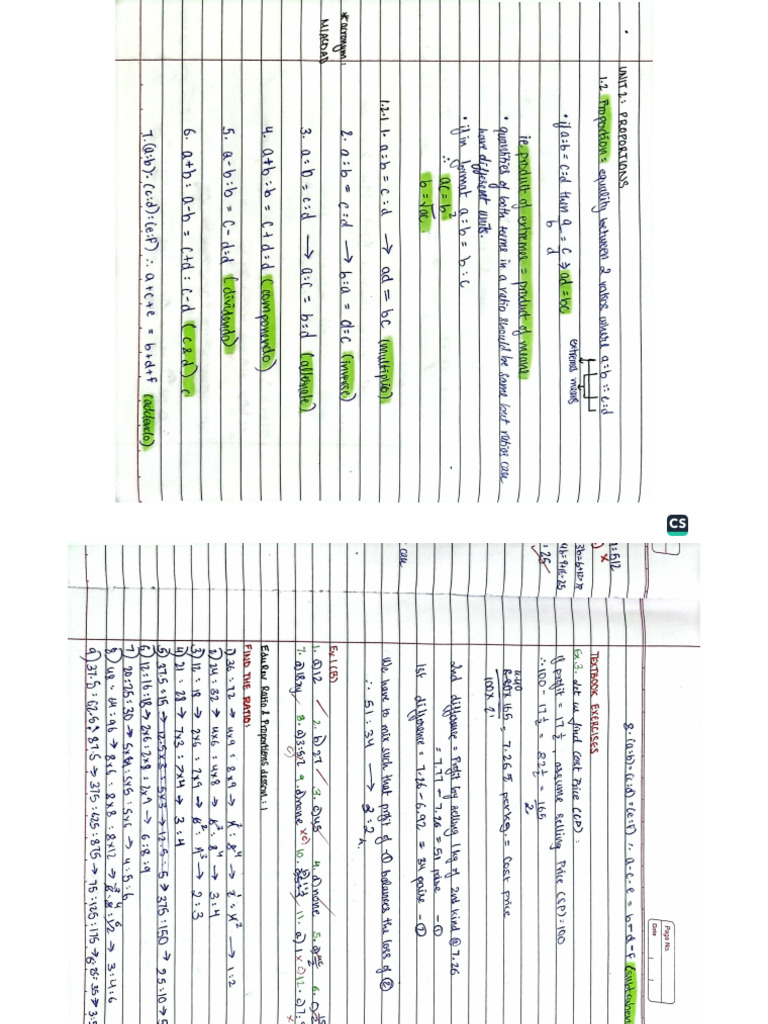 UNIT 2: PROPORTIONS
1.2 Proportion = equality between 2 ratios where a:b :: c:d
extremes means
• if a:b = c:d then a/b = c/d ⇒ ad = bc
ie product of extremes = product of means
• quantities of both terms in a ratio should be same but ratios can
have different units.
• if in format a:b = b:c
∴ ac = b²
b = √ac
1.2.1 1. a:b = c:d → ad = bc (multiplio)
2. a:b = c:d → b:a = d:c (inverse)
*acronym:
MIACDAD
3. a:b = c:d → a:c = b:d (alternate)
4. a+b:b = c+d:d (componendo)
5. a-b:b = c-d:d (dividendo)
6. a+b:a-b = c+d:c-d (c & d) c
7. (a:b):(c:d):(e:f) ∴ a+c+e = b+d+f (addendo)
CS
Page No.
Date
8. (a:b):(c:d)=(e:f) ∴ a-c-e = b-d-f
TEXTBOOK EXERCISES
Ex 3. Let us find Cost Price (CP):
If profit = 17 ½, assume Selling Price (SP): 100
∴ 100 - 17 ½ = 82 ½ = 165/2
= 7.26 % per kg. = cost price
2nd difference = Profit by selling 1 kg of 2nd kind @ 7.26
= 7.77 - 7.26 = 51 paise - ①
1st difference = 7.26 - 6.92 = 34 paise - ②
We have to mix such that profit of ① balances the loss of ②
∴ 51:34 → 3:2
Ex 1(B)
1. a) 12 2. b) 27 3. c) 45 4. d) none
7. a) 18xy 8. a) 3:5:2 9. d) none
Edurev Ratio & Proportions dessent: 1
FIND THE RATIO:
1) 36:72 → 4x9:8x9 → 1:2
2) 24:32 → 4x6:4x8 → 3:4
3) 12:18 → 2x6:2x9 → 2:3
4) 21:28 → 7x3:7x4 → 3:4
5) 37.5:15 → 12.5x3:5x3 → 12.5:5 → 375:150 → 25:10 → 5
6) 12:16:18 → 2x6:2x8:2x9 → 6:8:9
7) 20:25:30 → 5x4:5x5:5x6 → 4:5:6
8) 48:64:96 → 8x6:8x8:8x12 → 3:4:6
9) 37.5:62.5:87.5 → 375:625:875 → 75:125:175 → 35 → 3:5